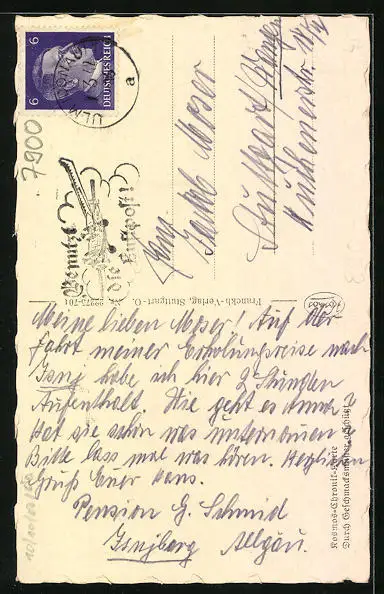 6
6
DEUTSCHES REICH
ULM (DONAU)
a
7900
Benutzt
die
Luftpost!
Jakob Moser
Stuttgart
Franckh-Verlag, Stuttgart-O.
Nr. 22275-701
Kosmos-Chronik-Karte
Durch Geschmacksmuster geschützt
Meine lieben Moser! Auf der
Fahrt meiner Erholungsreise nach
Isny habe ich hier 2 Stunden
Aufenthalt. Wie geht es
Hat sie schon was unternommen?
Bitte lass mal was hören. Herzlichen
Gruss Euer Hans.
Pension G. Schmid
Isnyberg Allgäu.